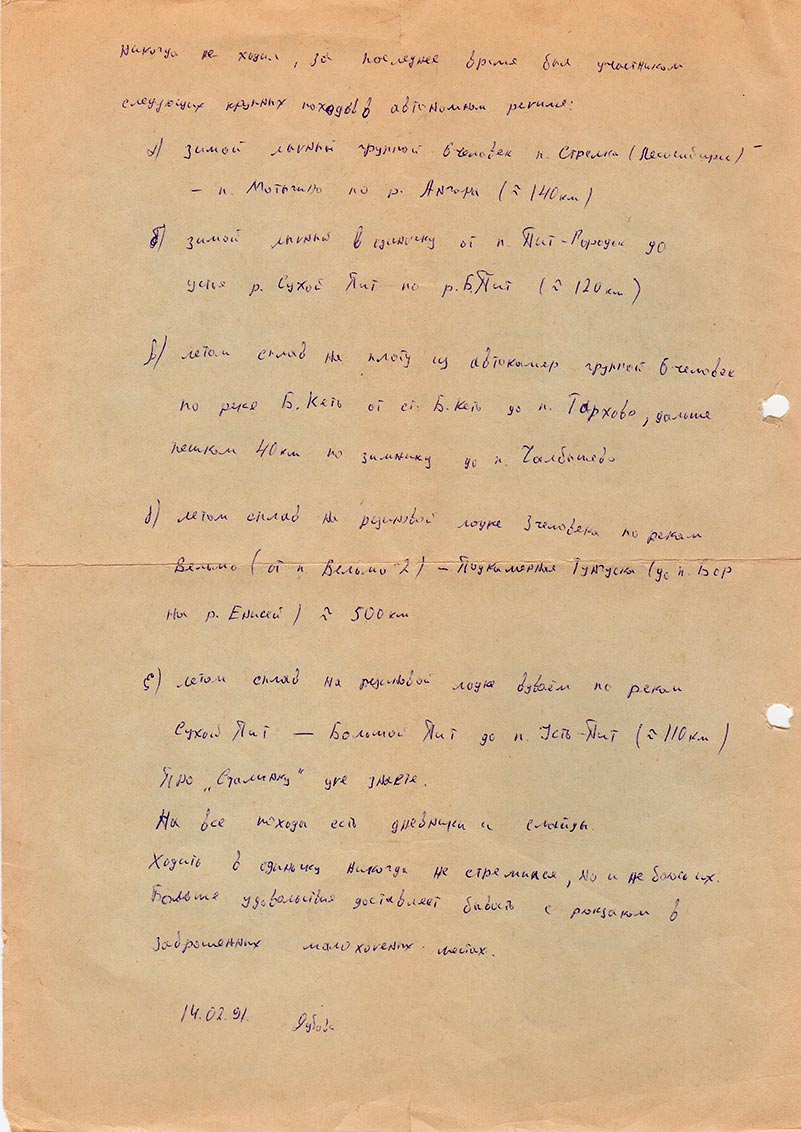 никогда не ходил, за последнее время был участником
следующих крупных походов в автономном режиме:
а) зимой лыжный группой 6 человек п. Стрелка (Лесосибирск) –
– п. Мотыгино по р. Ангара (≈ 140 км)
б) зимой лыжный в одиночку от п. Пит-Городок до
устья р. Сухой Пит по р. Б. Пит (≈ 120 км)
в) летом сплав на плоту из автокамер группой 6 человек
по реке Б. Кеть от ст. Б. Кеть до п. Тархово, дальше
пешком 40 км по зимнику до п. Чалбышево
д) летом сплав на резиновой лодке 3 человека по рекам
Вельмо (от п. Вельмо-2) – Подкаменная Тунгуска (до п. Бор
на р. Енисей) ≈ 500 км
е) летом сплав на резиновой лодке вдвоём по рекам
Сухой Пит — Большой Пит до п. Усть-Пит (≈ 110 км)
Про „Сталинку" уже знаете.
На все походы есть дневники и слайды.
Ходить в одиночку никогда не стремился, но и не боюсь их.
Больше удовольствия доставляет бывать с рюкзаком в
заброшенных малохоженых местах.
14.02.91.